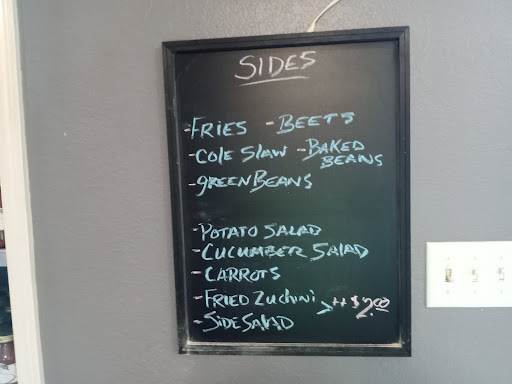 SIDES
-FRIES -BEETS
-Cole Slaw -BAKED BEANS
-green Beans
-POTATO SALAD
-CUCUMBER SALAD
-CARROTS
-FRIED Zuchini
-SIDE SALAD >++ $2.00